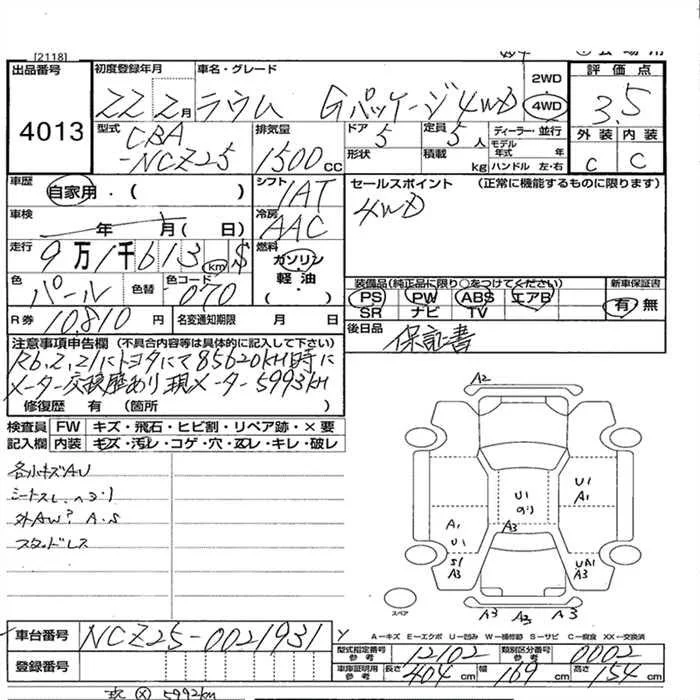 [2118]
出品番号 4013
初度登録年月 22 2月
車名・グレード ラウム Gパッケージ4WD
2WD
4WD
評価点 3.5
外装 内装
C C
型式 CBA-NCZ25
排気量 1500 CC
ドア 5
形状
定員 5人
積載 kg
ディーラー・並行
モデル年式 年
ハンドル 左・右
車歴 自家用・( )
シフト IAT
セールスポイント (正常に機能するものに限ります)
4WD
車検 年 月( 日)
冷房 AAC
走行 9万1千613 km $
燃料 ガソリン・軽油・
色 パール 色替 色コード 070
装備品(純正品に限り○をつけてください) 新車保証書
PS PW ABS エアB 有 無
SR ナビ TV
R券 10,810円 名変通知期限 月 日
後日品 保証書
注意事項申告欄 (不具合内容等は具体的に記入して下さい)
R6.2.21にトヨタにて85620KM時に
メーター交換歴あり 現メーター5993KM
修復歴 有 (箇所 )
検査員記入欄
FW キズ・飛石・ヒビ割・リペア跡・×要
内装 キズ・汚レ・コゲ・穴・スレ・キレ・破レ
各小キズAU
外AW
スタッドレス
A2
U1
A1
U1
A3
A1
U1
S1
A3
UA1
A3
スペア
A3 A3 A3
A-キズ E-エクボ U-凹み W-補修跡 S-サビ C-腐食 XX-交換済
車台番号 NCZ25-0021931
登録番号
型式指定番号 参考 12102 類別区分番号 参考 0002
車庫証明用 参考 長さ 404 cm 幅 169 cm 高さ 154 cm
5992km